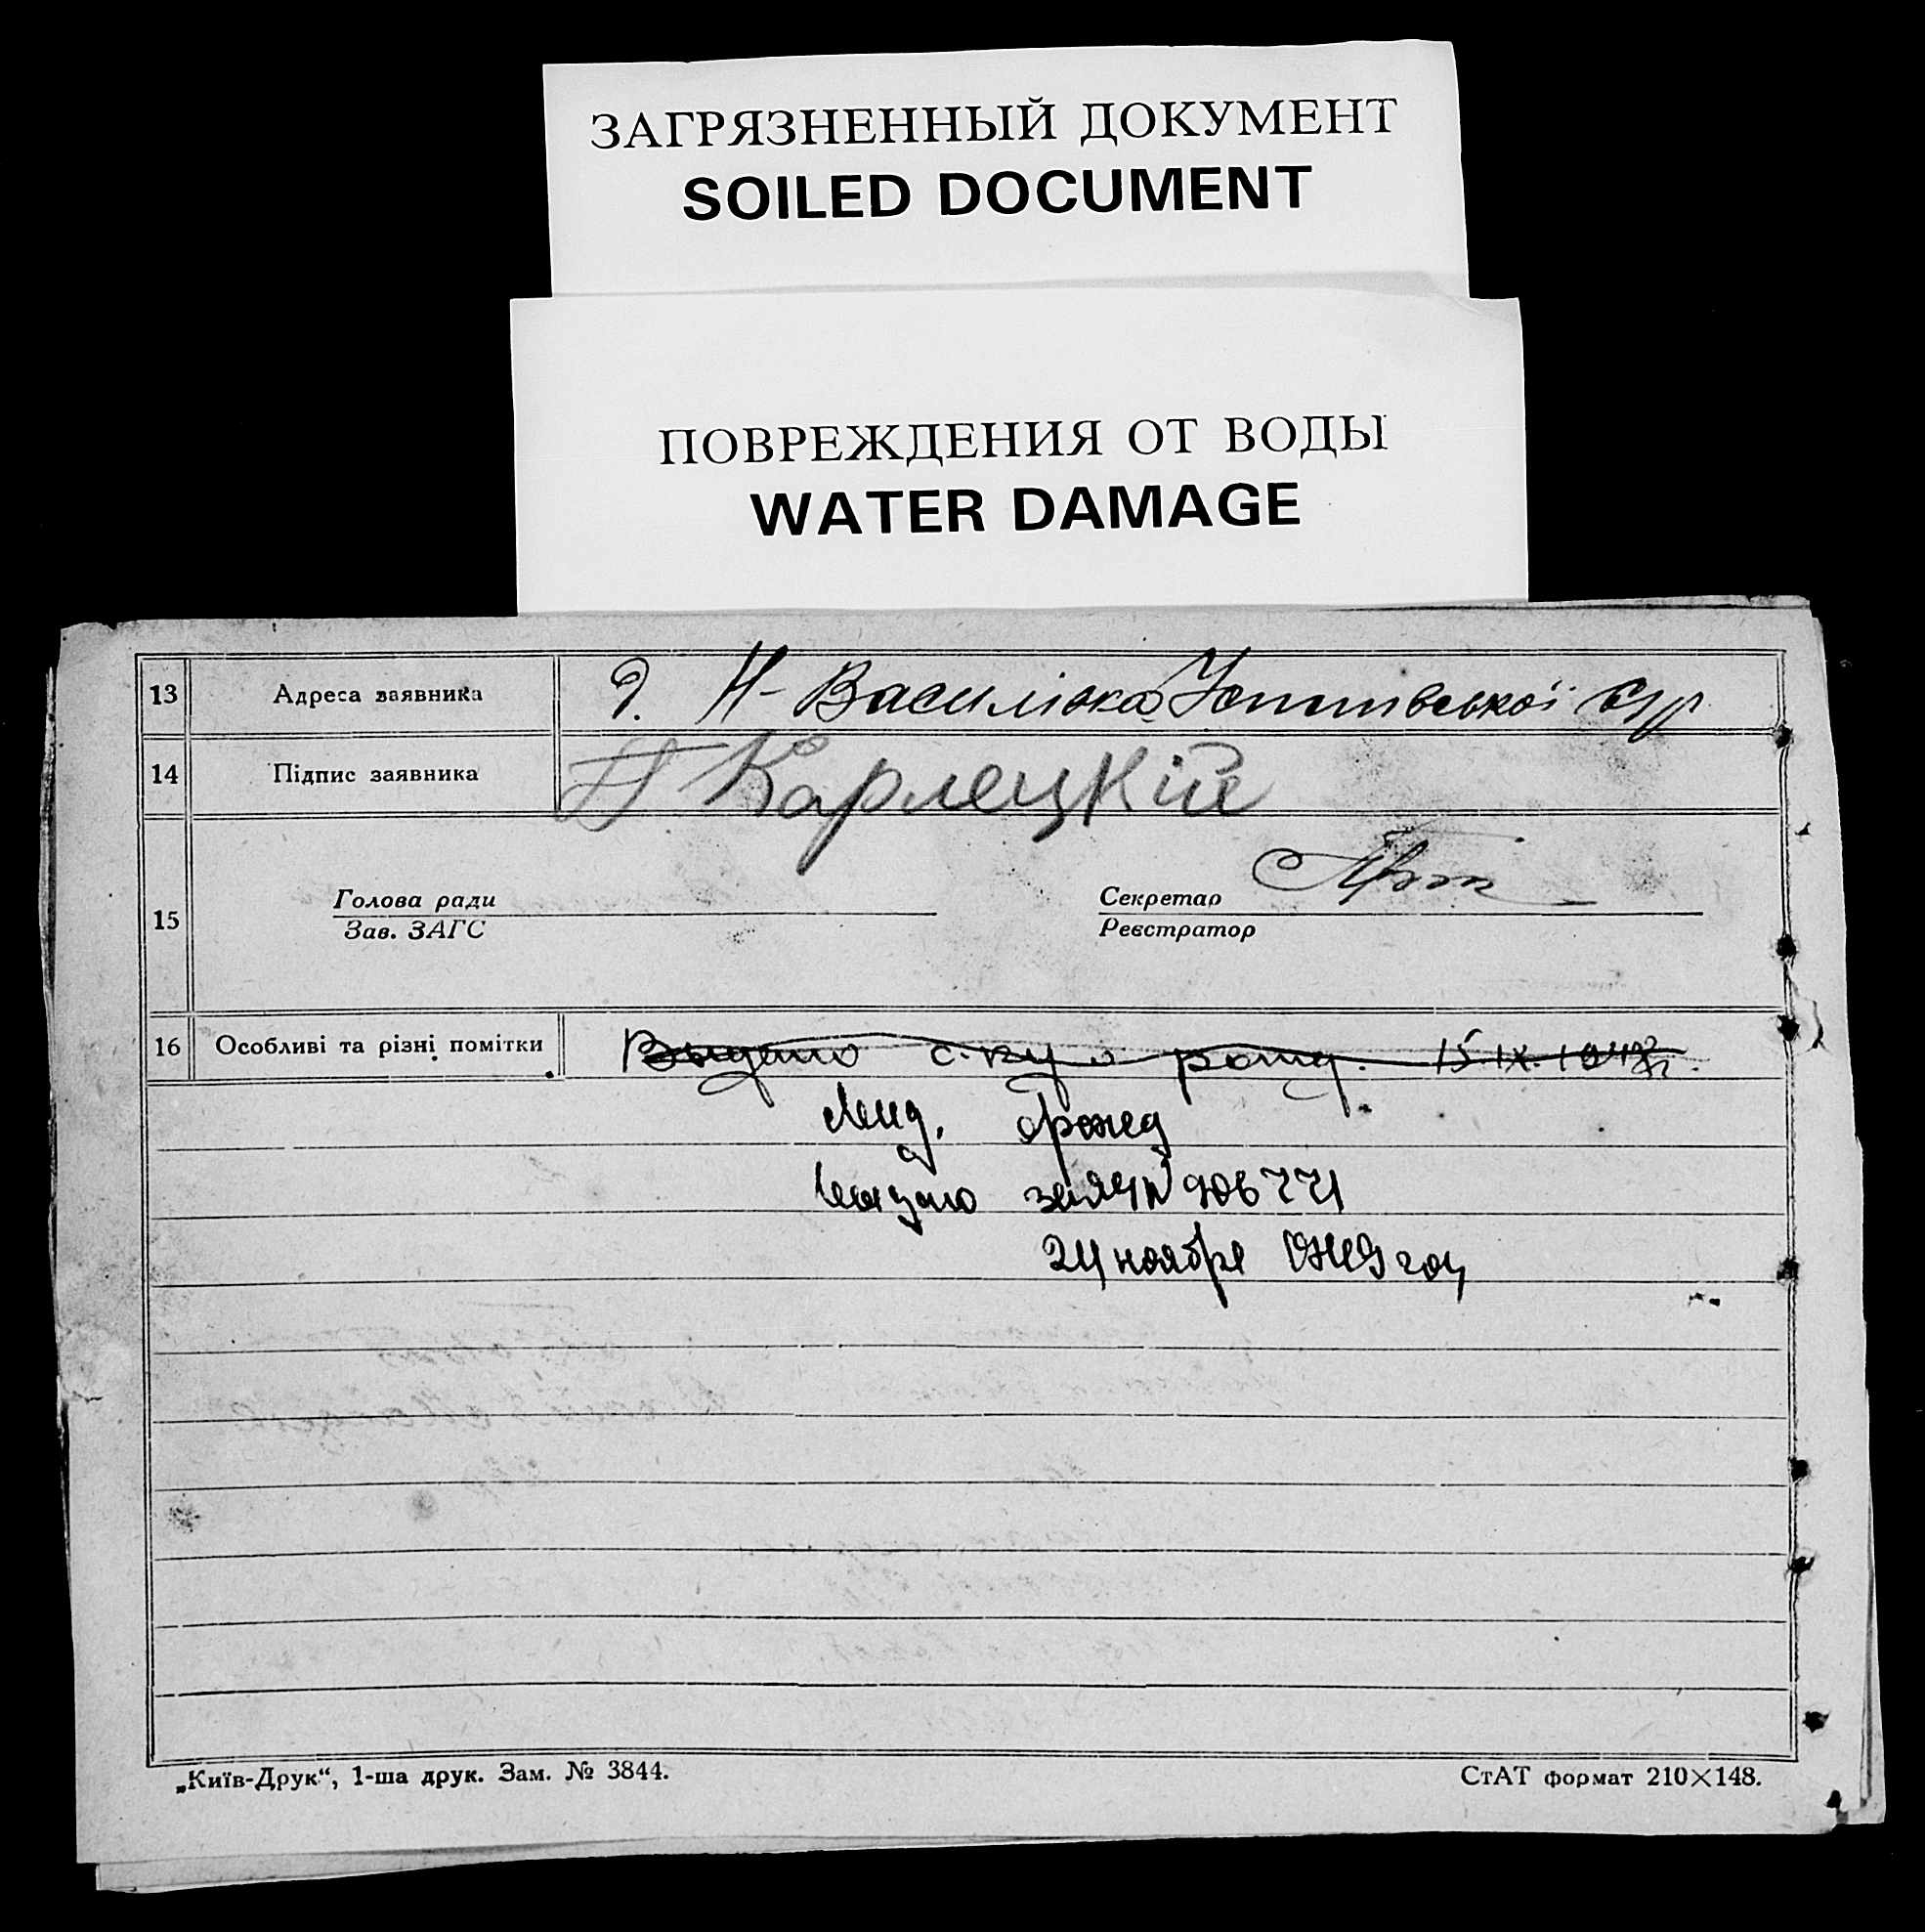 ЗАГРЯЗНЕННЫЙ ДОКУМЕНТ
SOILED DOCUMENT
ПОВРЕЖДЕНИЯ ОТ ВОДЫ
WATER DAMAGE
13 Адреса заявника д. Н-Василівка
14 Підпис заявника Карлецкій
15 Голова ради
Зав. ЗАГС
Секретар
Реєстратор
16 Особливі та різні помітки Выдано с-ку о рожд. 15.IX.
о рожд
24 ноября 1949 год
„Київ-Друк“, 1-ша друк. Зам. № 3844.
СтАТ формат 210×148.